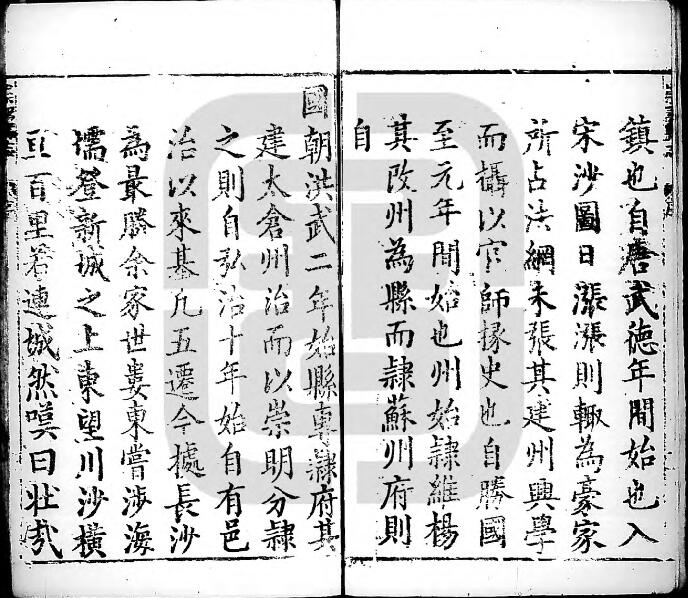 鎮也自唐武德年間始也入
宋沙圖日漲漲則輙為豪家
所占法網未張其建州興學
而攝以官師掾史也自勝國
至元年間始也州始隷維楊
其改州為縣而隷蘇州府則
自
國朝洪武二年始縣專隷府其
建太倉州治而以崇明分隷
之則自弘治十年始自有邑
治以來基凢五遷今據長沙
為最勝余家世婁東嘗渉海
堧登新城之上東望川沙橫
亘百里若連城然嘆曰壯哉